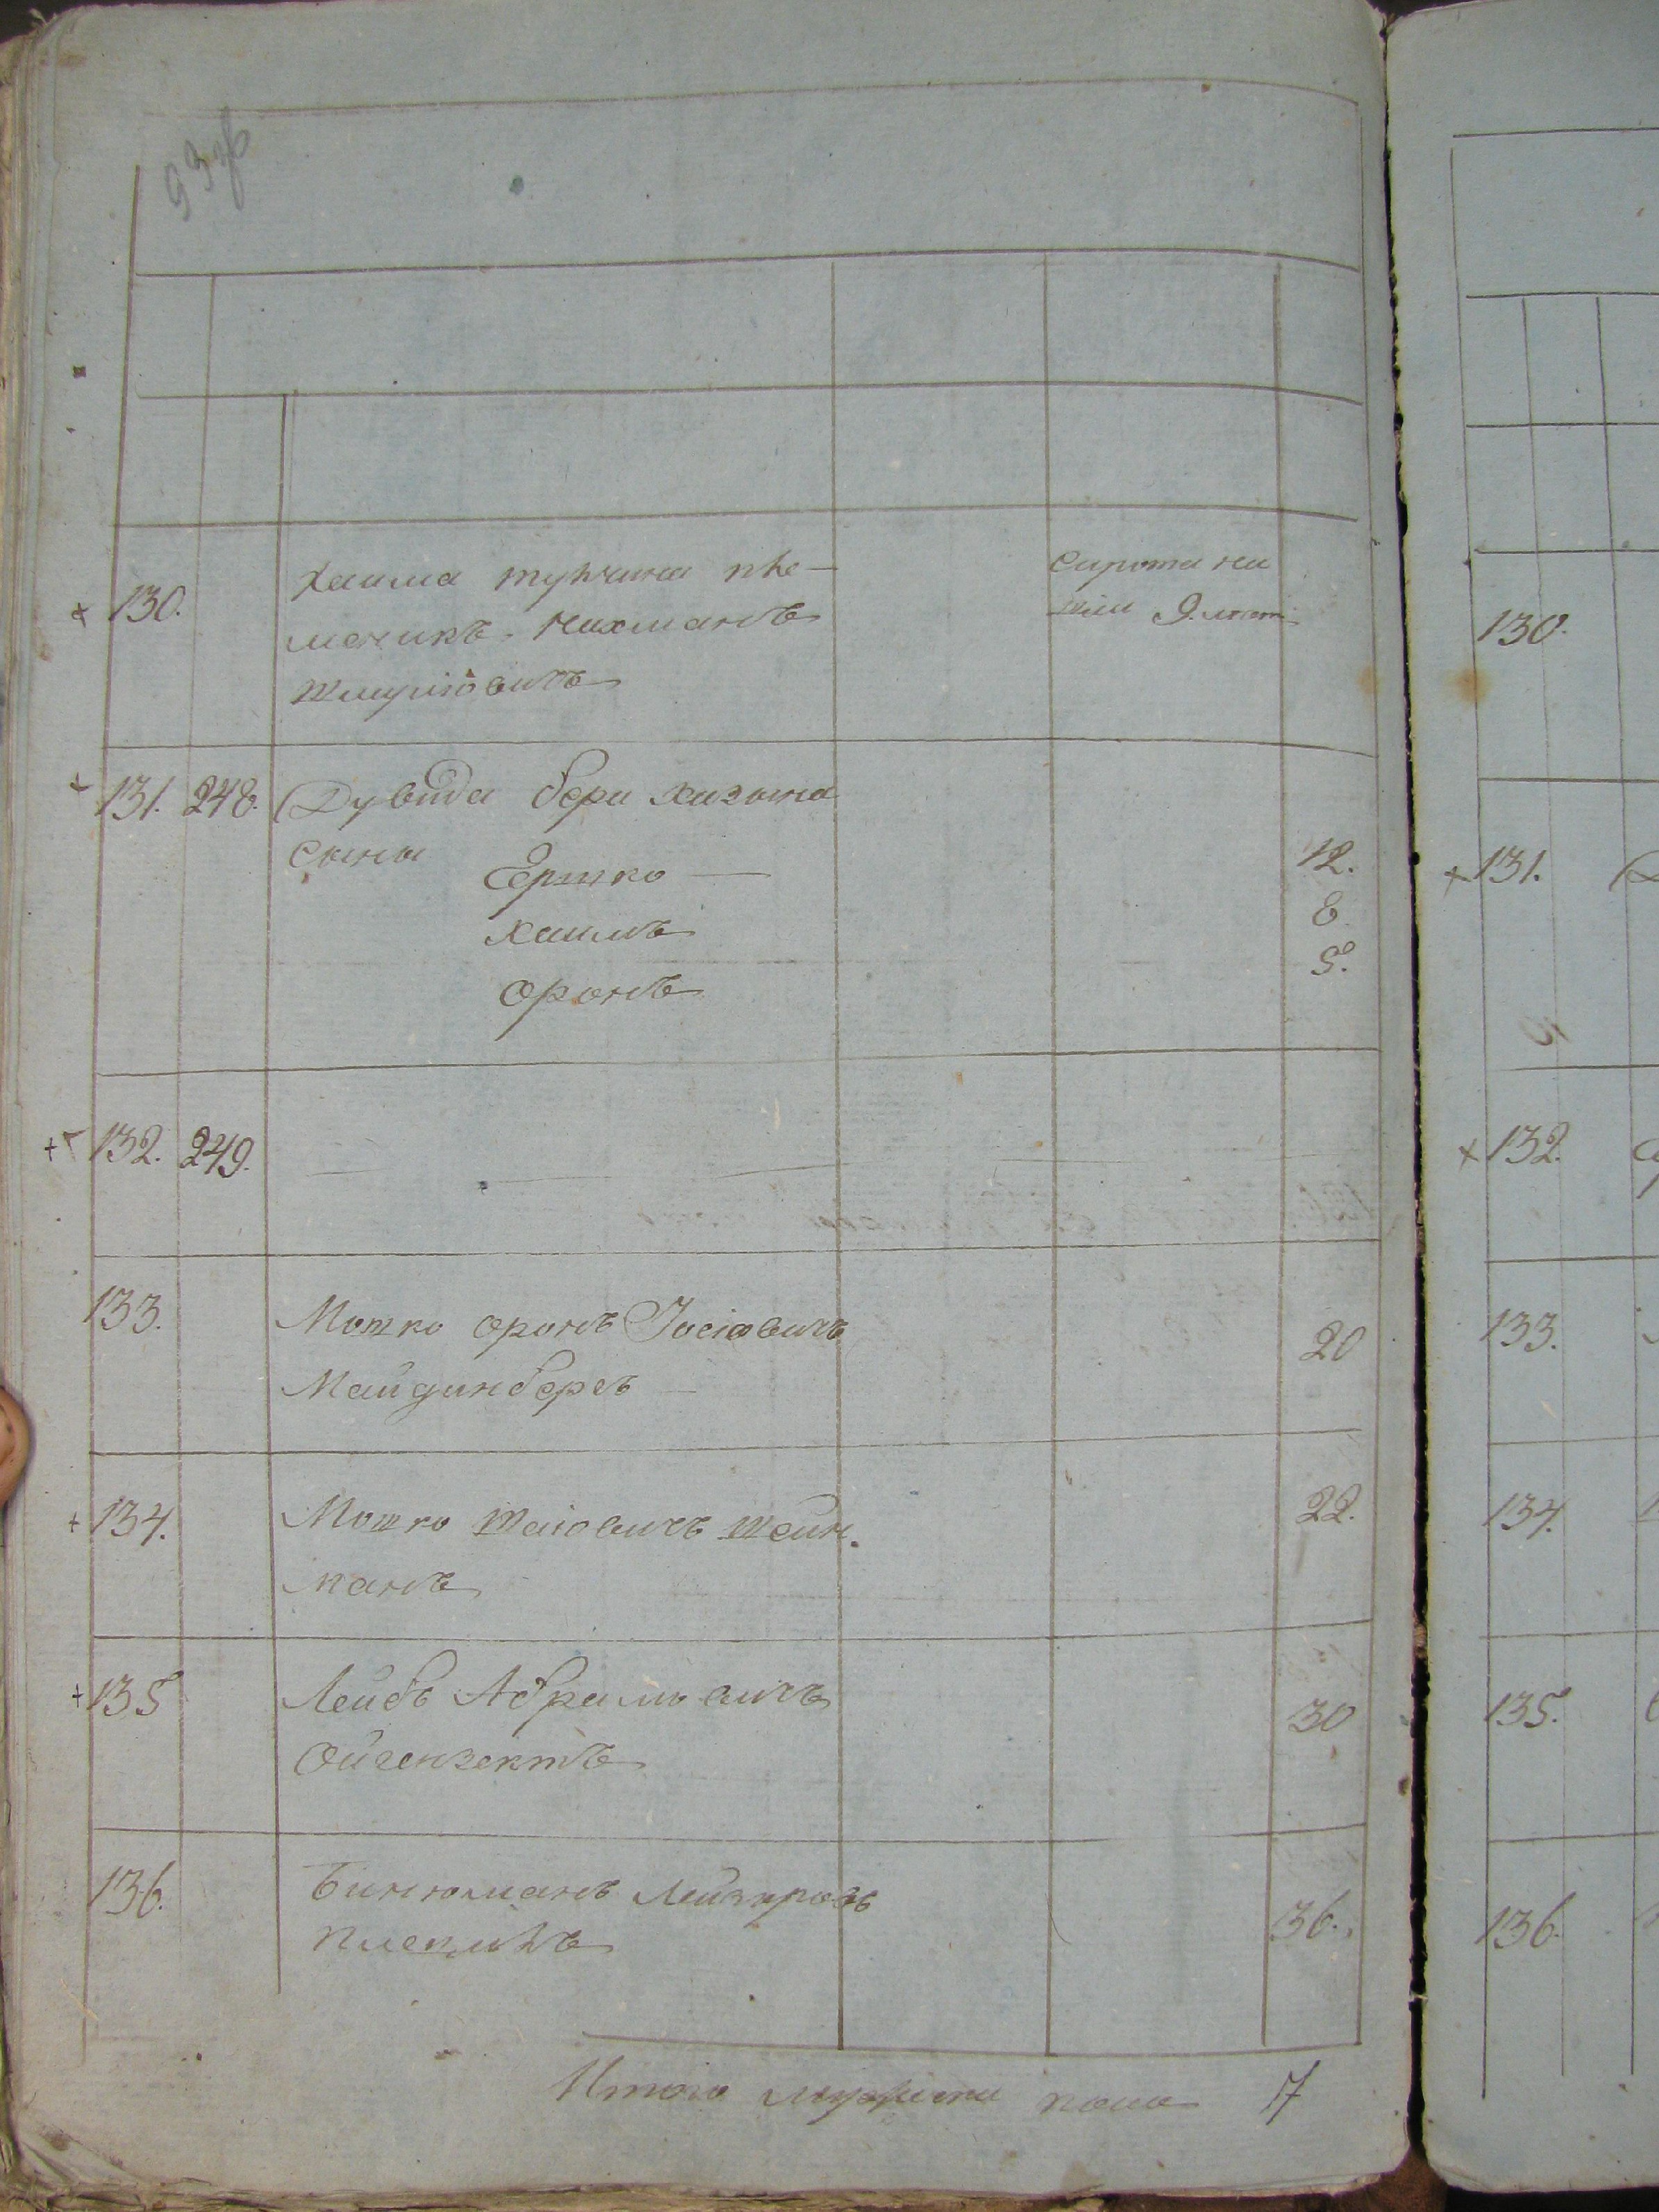 93об
130. Хаима турчина пле-
меникъ Нахманъ
Шмулiовичъ
сирота на
9. лѣт
131. 248. Дувида бери хазана
Сыны Ершко — 12.
Хаимъ 8.
оронъ 5.
132. 249. —
133. Мошко оронъ Iосiовичъ 20
Майдинбергъ
134. Мошко Шаiовичъ Шейн. 22.
манъ
135 Лейбъ Абрамовичъ 30
Ойгензехтъ
136. Бинюманъ Лейзеровъ 36.
Итого мужеска пола 7
130.
131.
132.
133.
134.
135.
136.